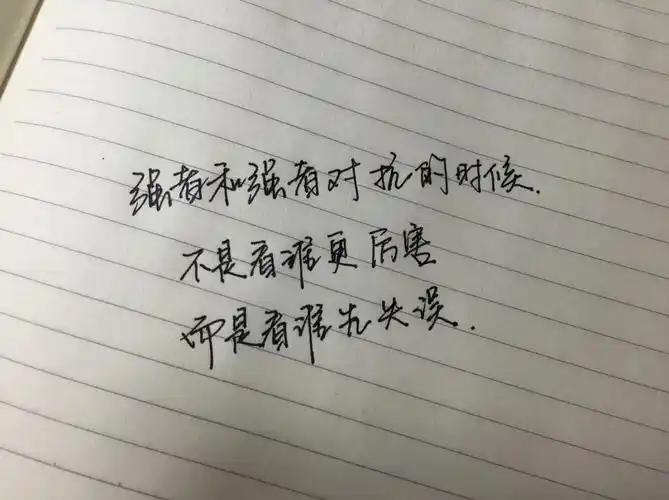 强者和强者对抗的时候.
不是看谁更厉害
而是看谁先失误.